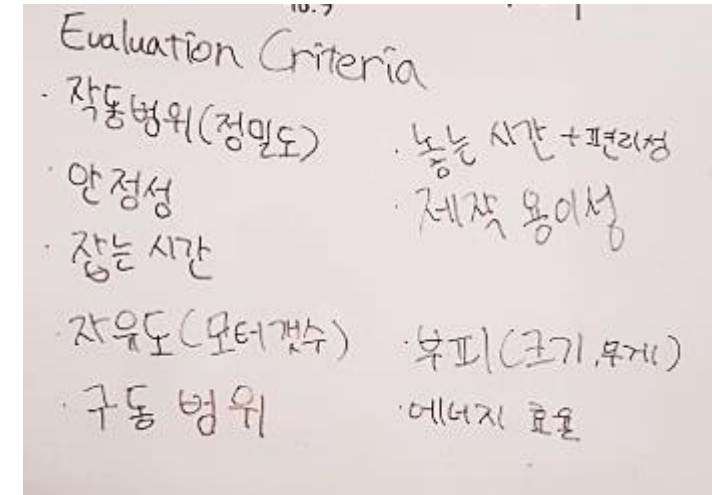 Evaluation Criteria
· 작동범위(정밀도)
· 안정성
· 잡는 시간
· 자유도(모터갯수)
· 구동 범위
· 놓는 시간 + 편리성
· 제작 용이성
· 부피(크기, 무게)
· 에너지 효율